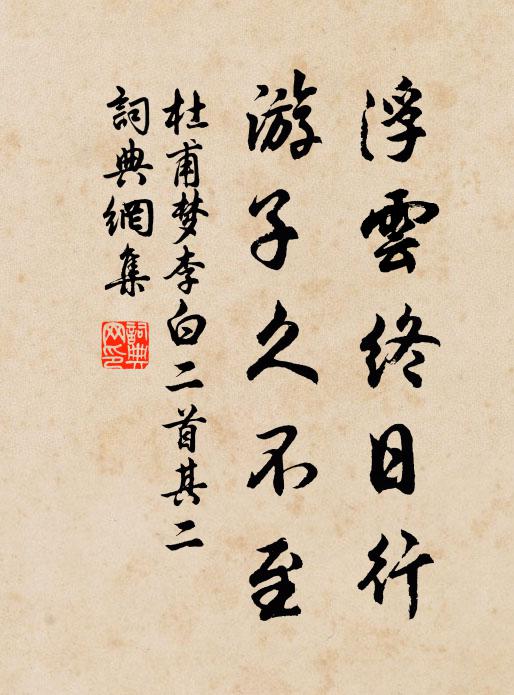 浮雲終日行
游子久不至
杜甫梦李白二首其二
詞典網集
詞典網印